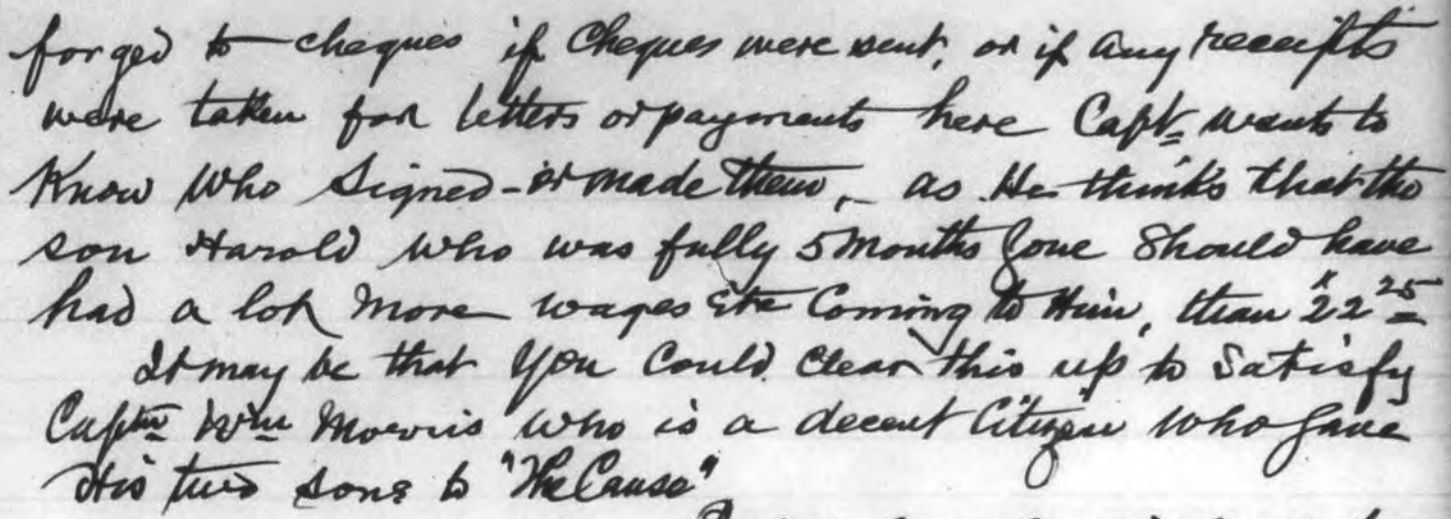 forged to cheques if Cheques were sent, or if any receipts
were taken for letters or payments here Capt. wants to
Know Who Signed - or made them, - as He thinks that the
son Harold who was fully 5 months gone Should have
had a lot more wages etc Coming to Him, than $22 25
It may be that you Could Clear this up to Satisfy
Captn Wm Morris who is a decent Citizen who gave
His two sons to "The Cause"